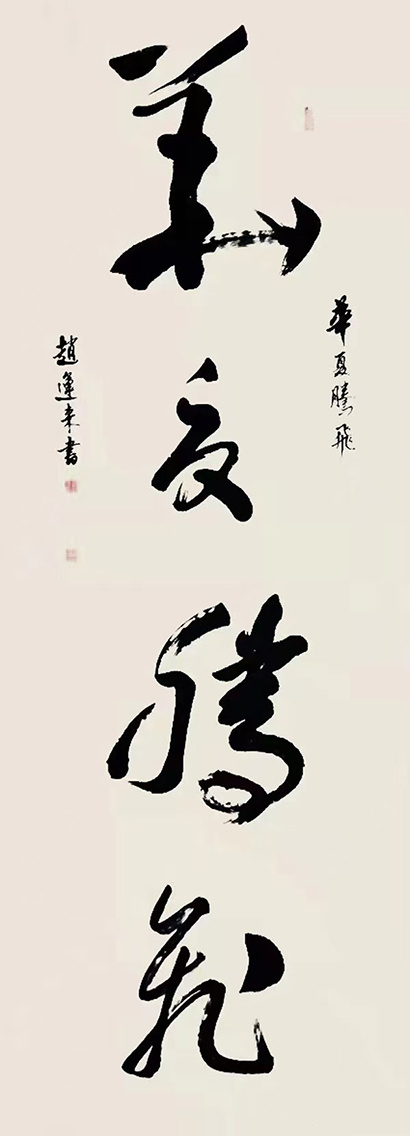 華夏騰飛
華夏騰飛
趙運來書